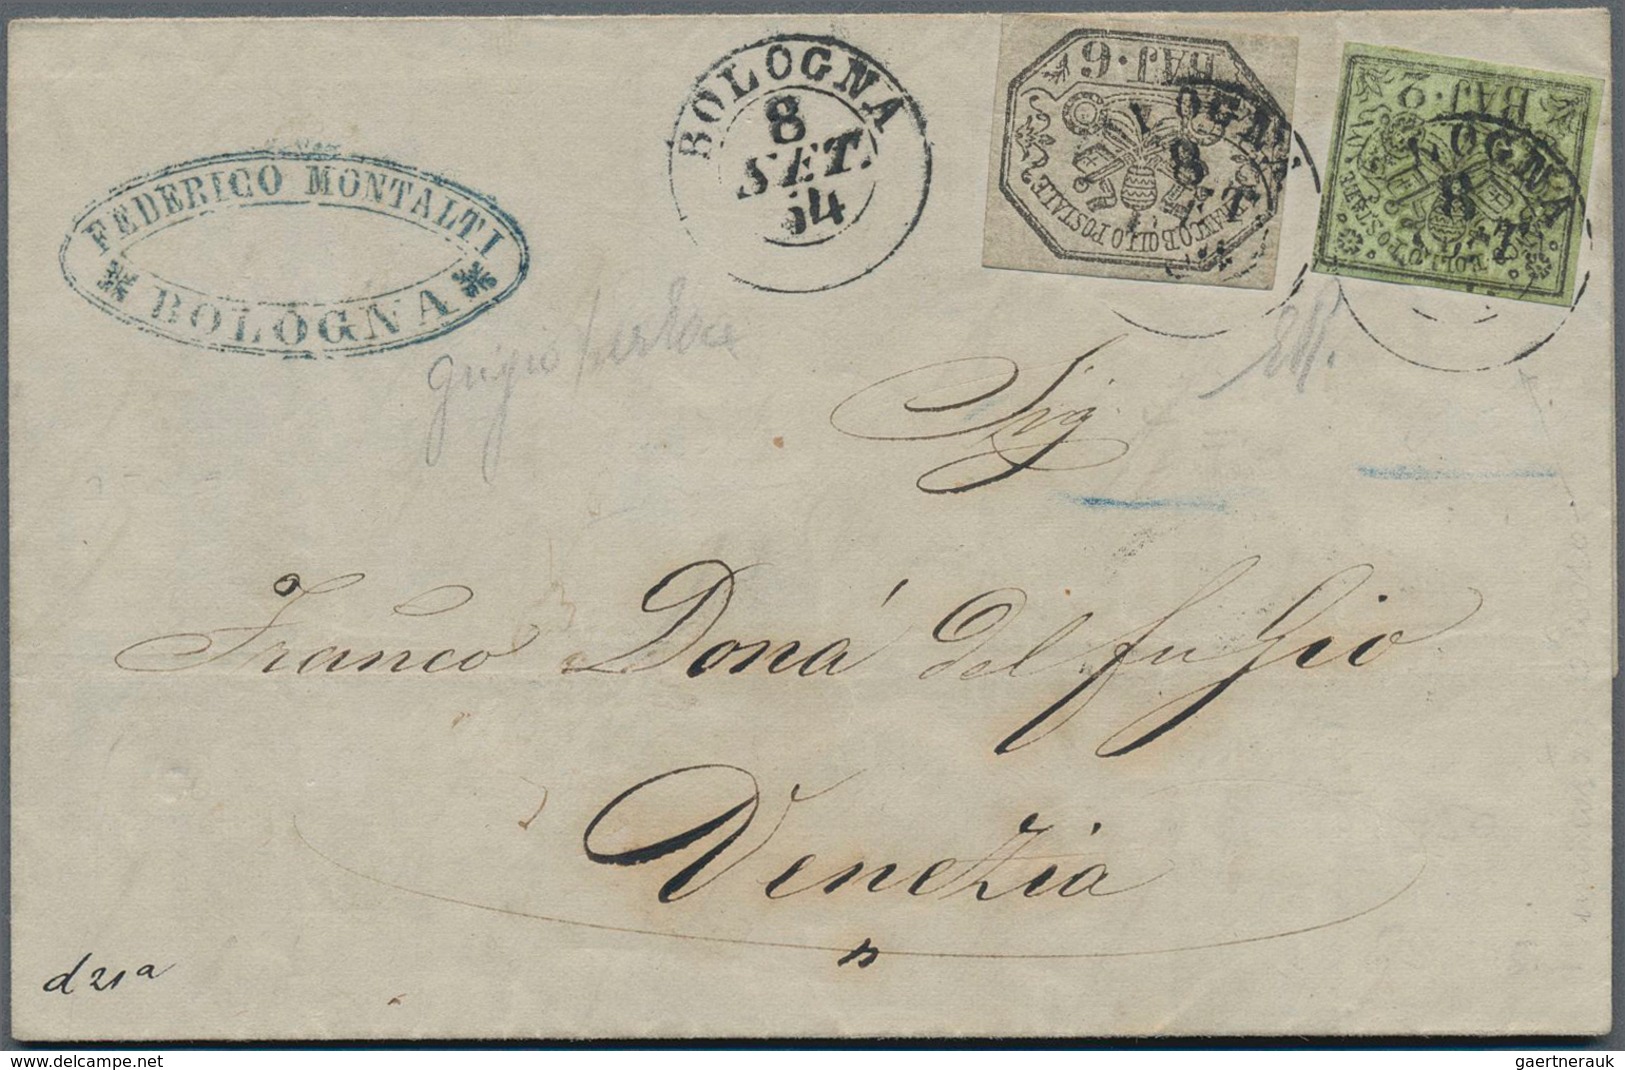 FEDERICO MONTALTI
BOLOGNA
BOLOGNA
8
SET.
54
BAJ·6
FRANCO BOLLO POSTALE
OGNA
8
BAJ·2
BOLLO POSTALE
OGNA
8
grigio perlaceo
Sig
Franco Doná del fu Gio
Venezia
d 21a
www.delcampe.net
gaertnerauk